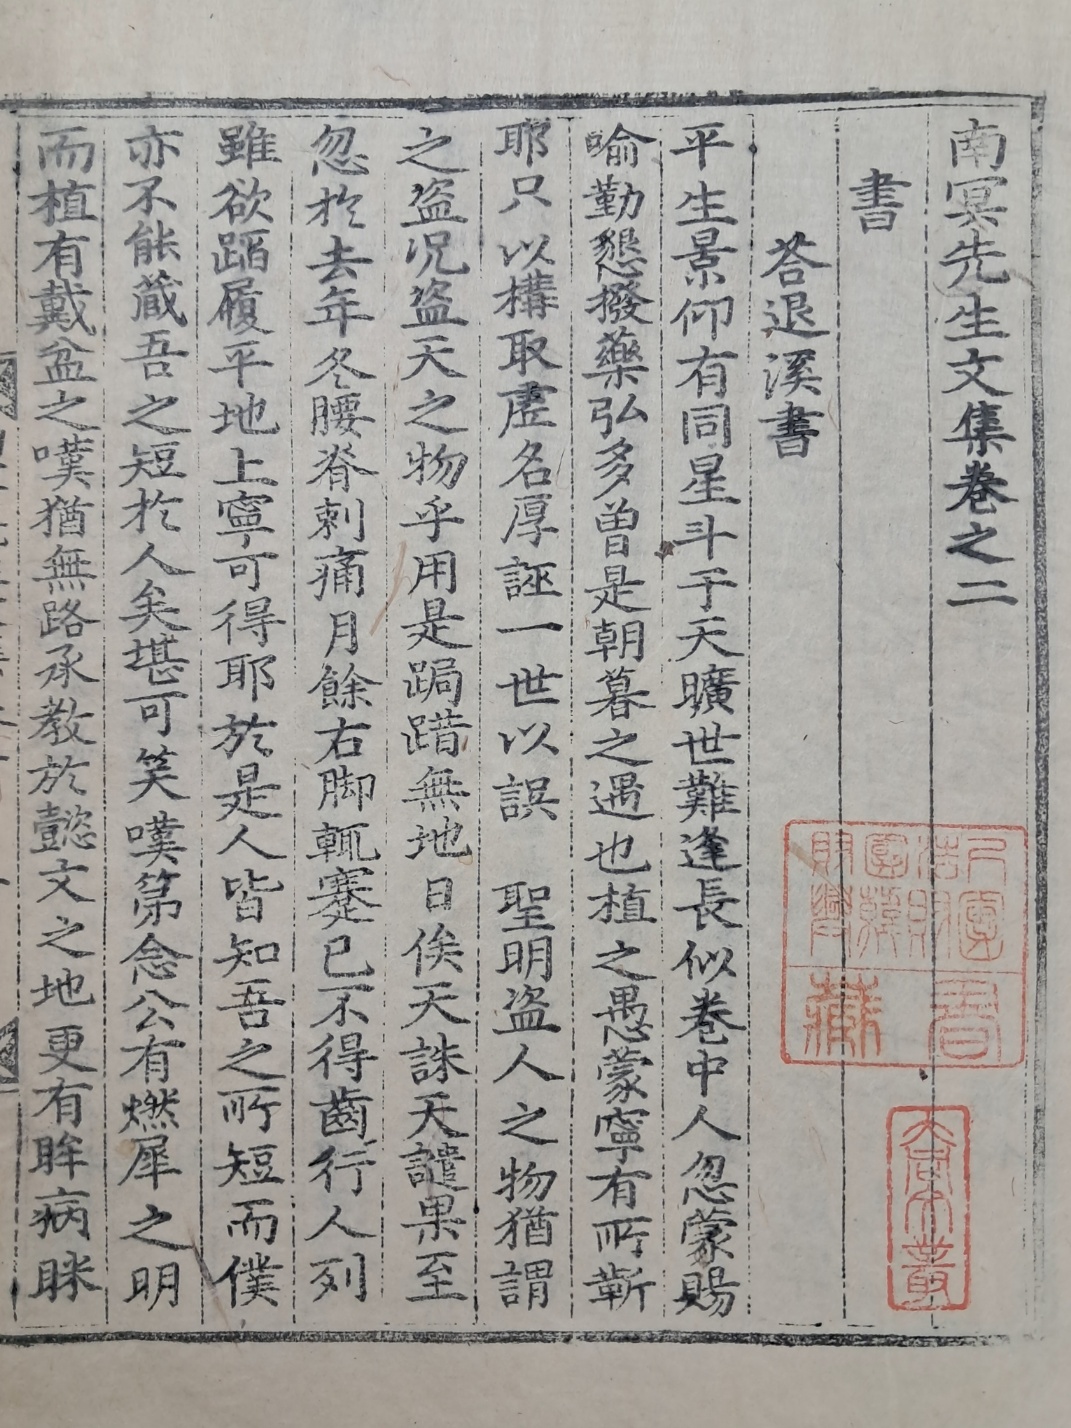 南冥先生文集卷之二
書
荅退溪書
平生景仰有同星斗于天曠世難逢長似卷中人忽蒙賜
喻勤懇撥藥弘多曾是朝暮之遇也植之愚蒙寧有所靳
耶只以構取虛名厚誣一世以誤　聖明盜人之物猶謂
之盜况盜天之物乎用是跼蹐無地日俟天誅天譴果至
忽於去年冬腰脊刺痛月餘右脚輒蹇已不得齒行人列
雖欲蹈履平地上寧可得耶於是人皆知吾之所短而僕
亦不能藏吾之短於人矣堪可笑嘆第念公有燃犀之明
而植有戴盆之嘆猶無路承教於懿文之地更有眸病眯